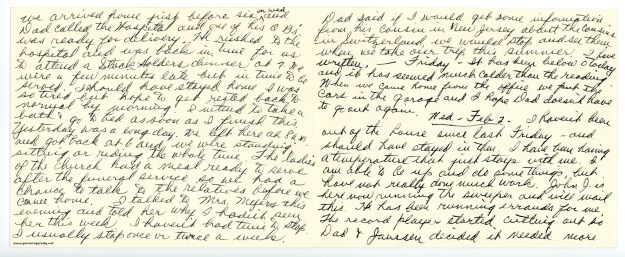 we arrived home just before six on wed. and
Dad called the Hospital and one of his O.B's.
was ready for delivery. He rushed to the
hospital and was back in time for us
to attend a Stock Holders dinner at 7. We
were a few minutes late but in time to be
served. I should have stayed home I was
so tired but hope to get rested back to
normal by morning. I intend to take a
bath & go to bed as soon as I finish this
Yesterday was a long day. We left here at 8 a.m.
and got back at 6 and we were standing,
sitting or riding the whole time. The ladies
of the Church had a meal ready to serve
after the funeral service so we had a
chance to talk to the relatives before we
came home. I talked to Mrs. Myers this
evening and told her why I hadn't seen
her this week. I haven't had time to stop.
I usually stop once or twice a week.
Dad said if I would get some information
from his cousin in New Jersey about the cousins
in Switzerland we would stop and see them
when we take our trip this summer. I have
written. Friday - It has been below 0 today
and it has seemed much colder than the reading.
When we came home from the office we put the
cars in the garage and I hope Dad doesn't have
to go out again.
Wed - Feb 2. I haven't been
out of the house since last Friday - and
should have stayed in then. I have been having
a temperature that just stays with me. I
am able to be up and do some things but
have not really done much work. John J. is
here now running the sweeper and will mail
this. He has been running errands for me
The record player started cutting out so
Dad & Janssen decided it needed more